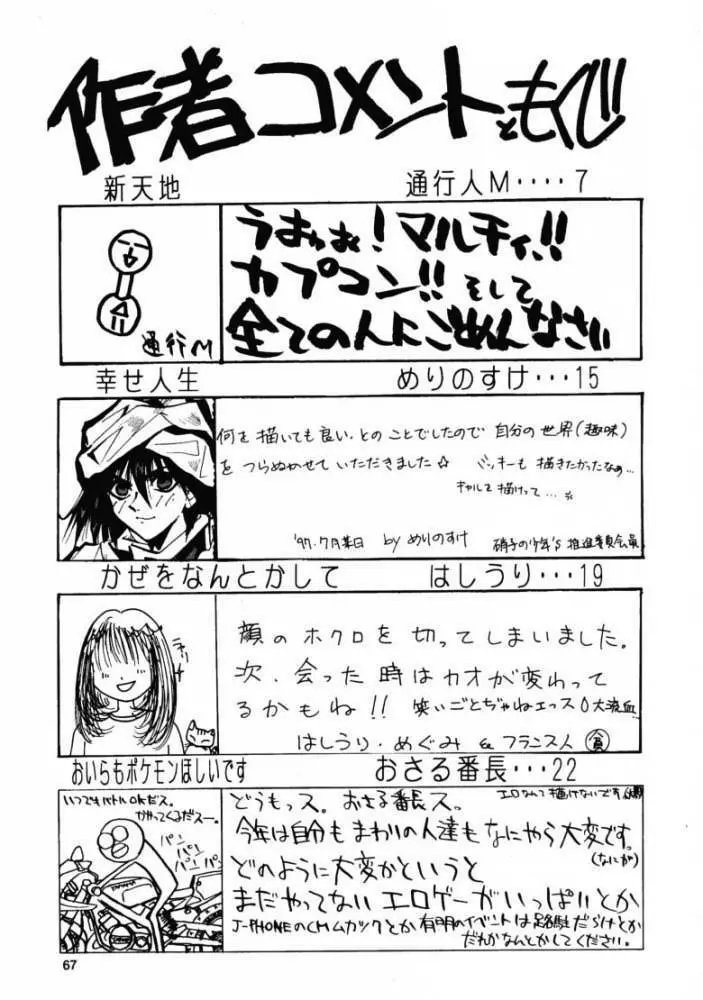 作者コメントともくじ
新天地 通行人M‥‥7
うおぉぉ!マルチィ!!
カプコン!!そして
全ての人にごめんなさい
通行M
幸せ人生 めりのすけ‥‥15
何を描いても良い、とのことでしたので 自分の世界(趣味)
をつらぬかせていただきました☆ バッキーも描きたかったなぁ…
ギャルで描けって…
'97.7月某日 by めりのすけ 硝子の少年's 推進委員会員
かぜをなんとかして はしうり‥‥19
顔のホクロを切ってしまいました。
次、会った時はカオが変わって
るかもね!! 笑いごとぢゃねエっス 大流血
はしうり・めぐみ & フランス人 貧
おいらもポケモンほしいです おさる番長‥‥22
いつでもバトルOKだス。
かかってくるだスー。
パン パン パン パン
どうもっス。おさる番長ス。 エロなんて描けないです
今年は自分もまわりの人達もなにやら大変です。
(なにが)
どのように大変かというと
まだやってないエロゲーがいっぱいとか
J-PHONEのCMムカックとか 有明のイベントは路駐だらけとか
だれかなんとかしてください。
67